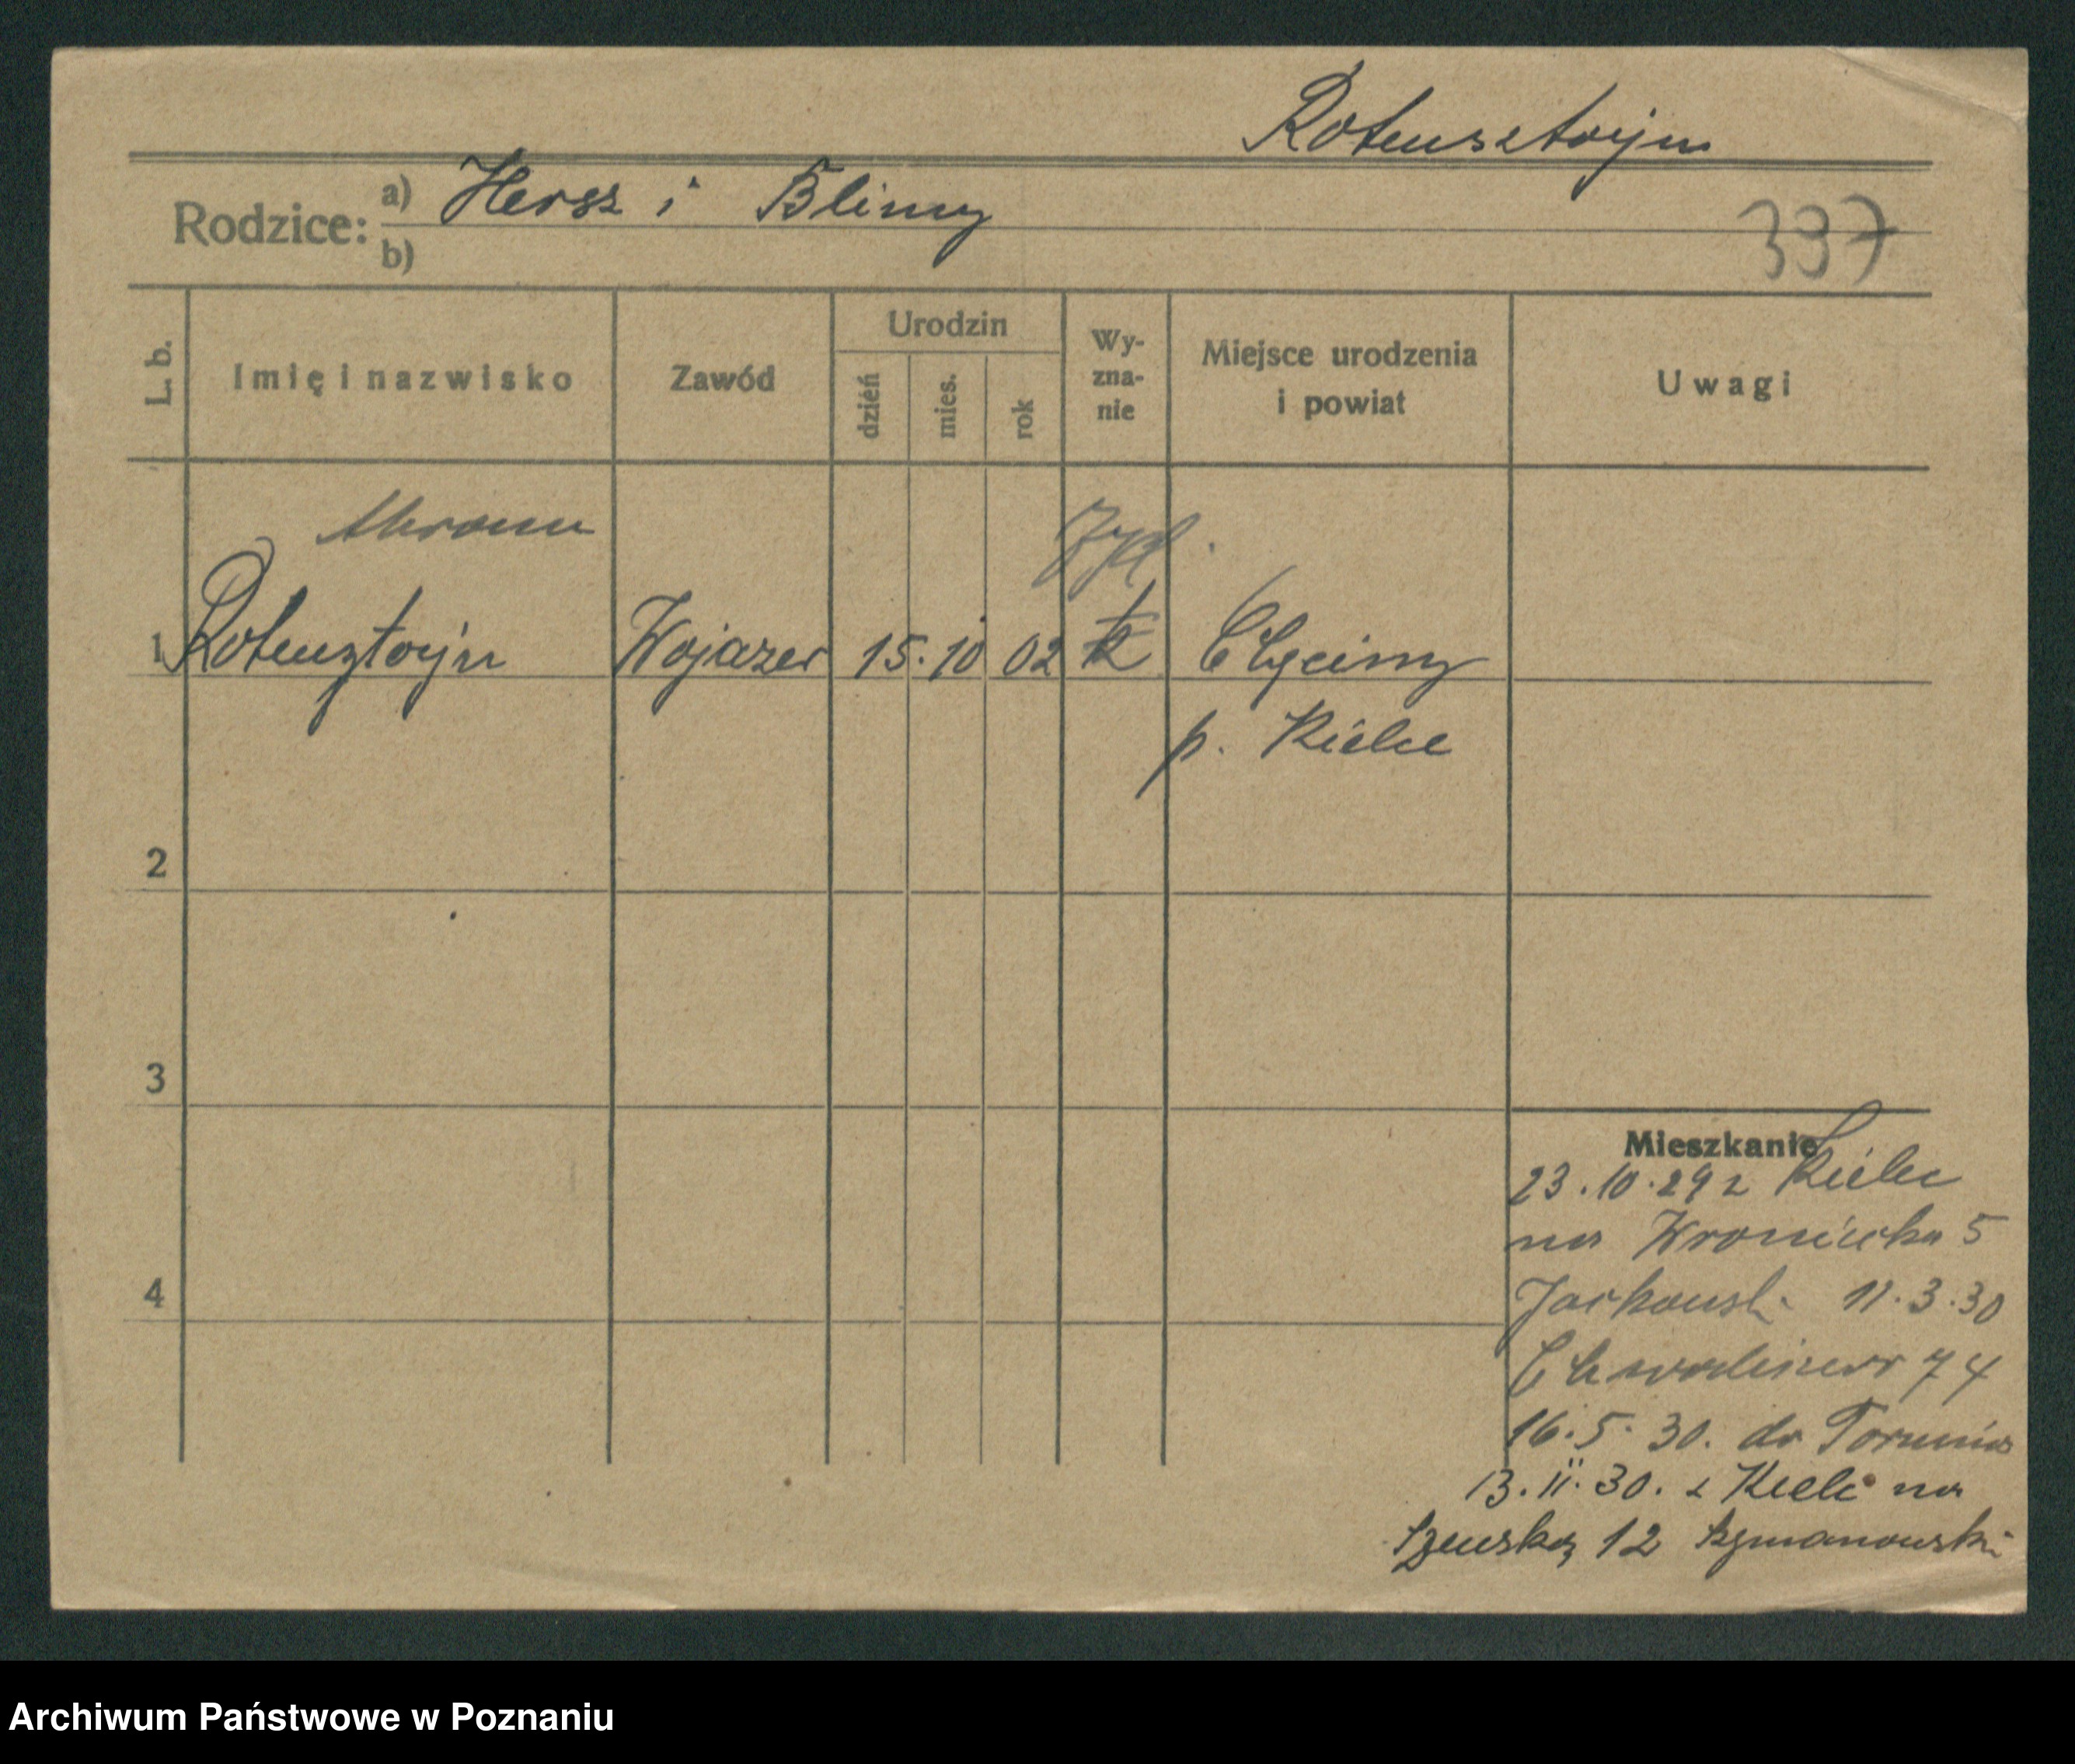 Rotensztajn
Rodzice: a) Hersz i Blimy
b)
337
L. b.
Imię i nazwisko
Zawód
Urodzin
dzień
mies.
rok
Wy-
zna-
nie
Miejsce urodzenia
i powiat
Uwagi
Abram
żyd.
1 Rotensztajn Wojazer 15. 10 02 k Chęciny
p. Kielce
2
3
4
Mieszkanie
23.10.29 z Kielc
na Wroniecka 5
11.3.30
Chwaliszewo 74
16.5.30. do Torunia
13.11.30. z Kielc na
12 Szymanowski
Archiwum Państwowe w Poznaniu